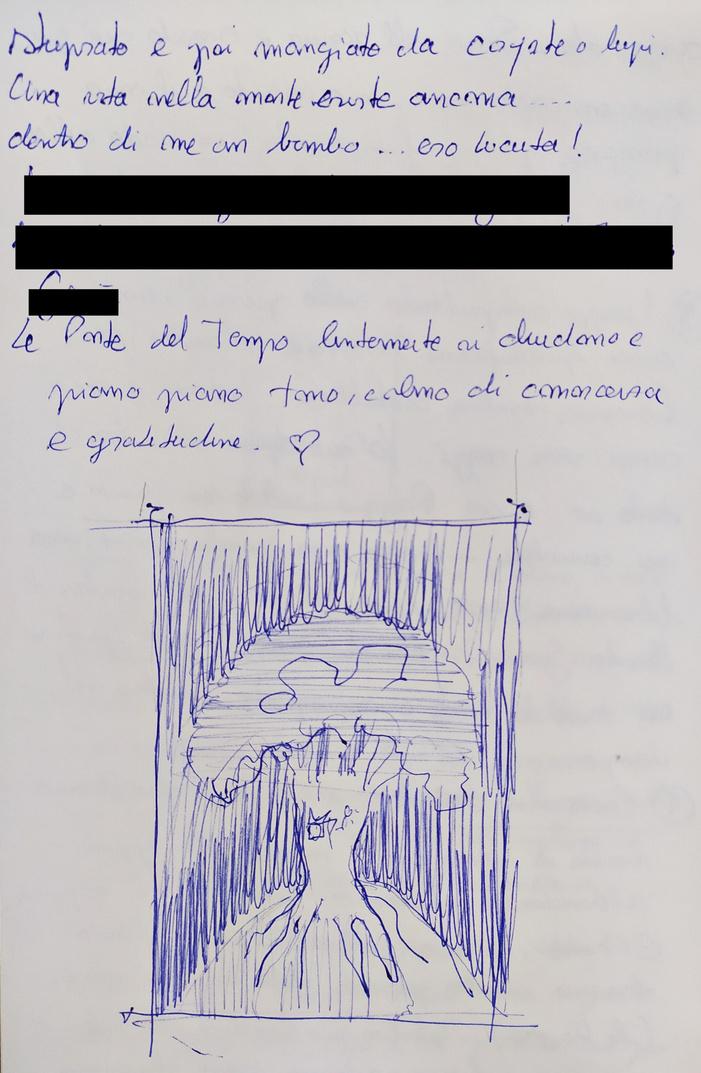 Stuprato e poi mangiato da coyote o lupi.
Una vita nella morte esiste ancora ....
dentro di me un bimbo ... ero incinta!
Le Porte del Tempo lentamente si chiudono e
piano piano torno, colmo di conoscenza
e gratitudine. ♡